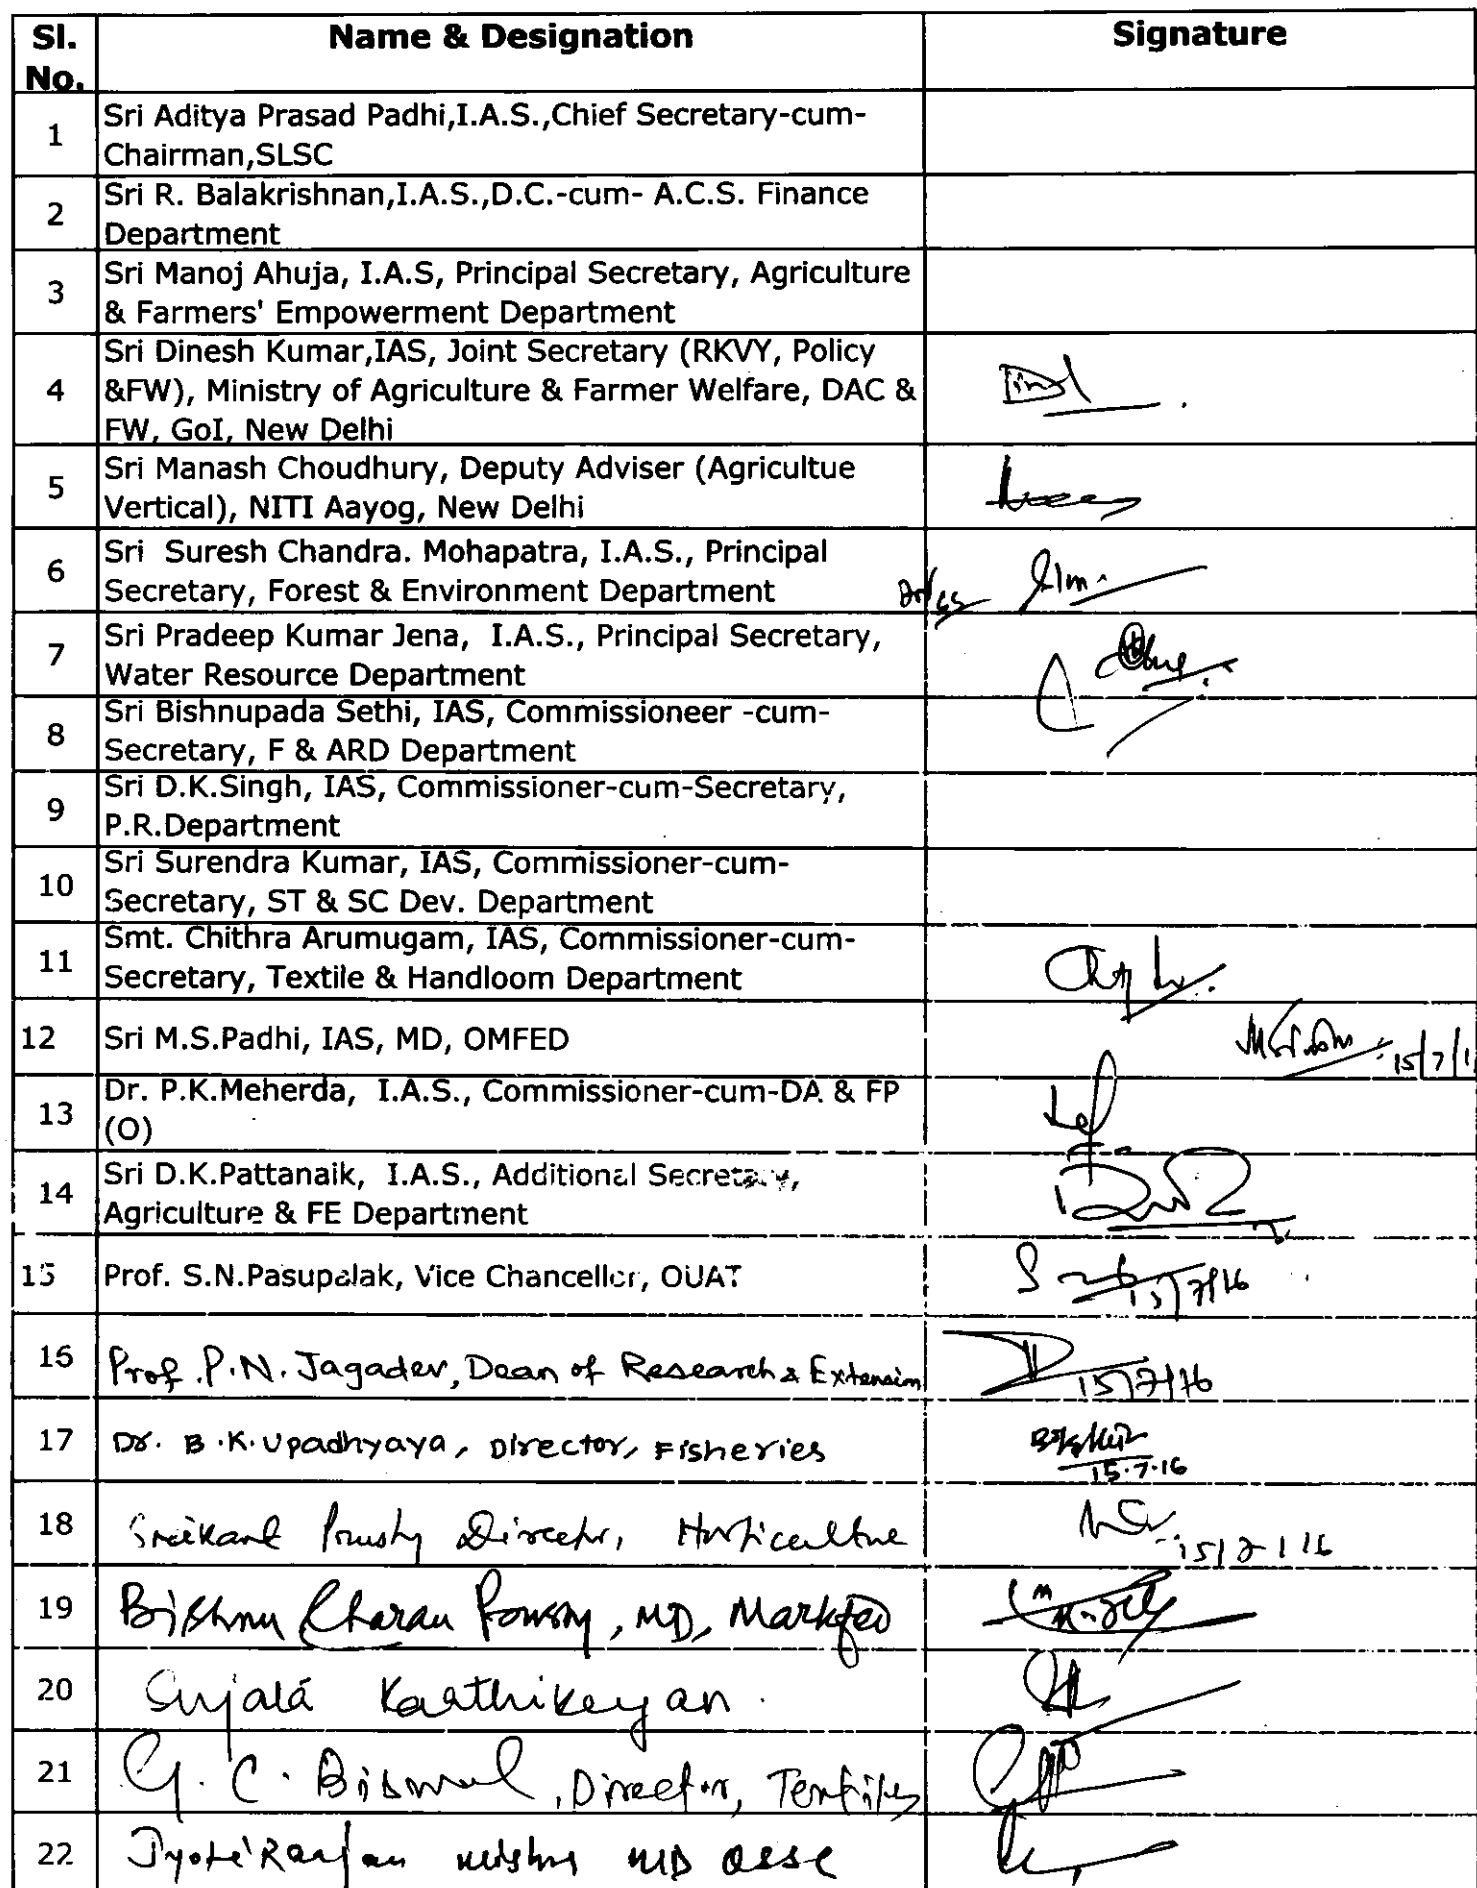 Sl. No.
Name & Designation
Signature
1
Sri Aditya Prasad Padhi,I.A.S.,Chief Secretary-cum-
Chairman,SLSC
2
Sri R. Balakrishnan,I.A.S.,D.C.-cum- A.C.S. Finance
Department
3
Sri Manoj Ahuja, I.A.S, Principal Secretary, Agriculture
& Farmers' Empowerment Department
4
Sri Dinesh Kumar,IAS, Joint Secretary (RKVY, Policy
&FW), Ministry of Agriculture & Farmer Welfare, DAC &
FW, GoI, New Delhi
5
Sri Manash Choudhury, Deputy Adviser (Agricultue
Vertical), NITI Aayog, New Delhi
6
Sri Suresh Chandra. Mohapatra, I.A.S., Principal
Secretary, Forest & Environment Department
7
Sri Pradeep Kumar Jena, I.A.S., Principal Secretary,
Water Resource Department
8
Sri Bishnupada Sethi, IAS, Commissioneer -cum-
Secretary, F & ARD Department
9
Sri D.K.Singh, IAS, Commissioner-cum-Secretary,
P.R.Department
10
Sri Surendra Kumar, IAS, Commissioner-cum-
Secretary, ST & SC Dev. Department
11
Smt. Chithra Arumugam, IAS, Commissioner-cum-
Secretary, Textile & Handloom Department
12
Sri M.S.Padhi, IAS, MD, OMFED
15/7/1
13
Dr. P.K.Meherda, I.A.S., Commissioner-cum-DA & FP
(O)
14
Sri D.K.Pattanaik, I.A.S., Additional Secretary,
Agriculture & FE Department
15
Prof. S.N.Pasupalak, Vice Chancellor, OUAT
15/7/16
16
Prof. P.N. Jagadev, Dean of Research & Extension
15/7/16
17
Dr. B.K. Upadhyaya, Director, Fisheries
15.7.16
18
Sreikant Prusty Director, Horticulture
15/7/16
19
Bishnu Charan , MD, Markfed
20
Sujata Kaarthikeyan.
21
G. C. , Director, Textiles
22
Jyoti Ranjan Mishra MD OSSC